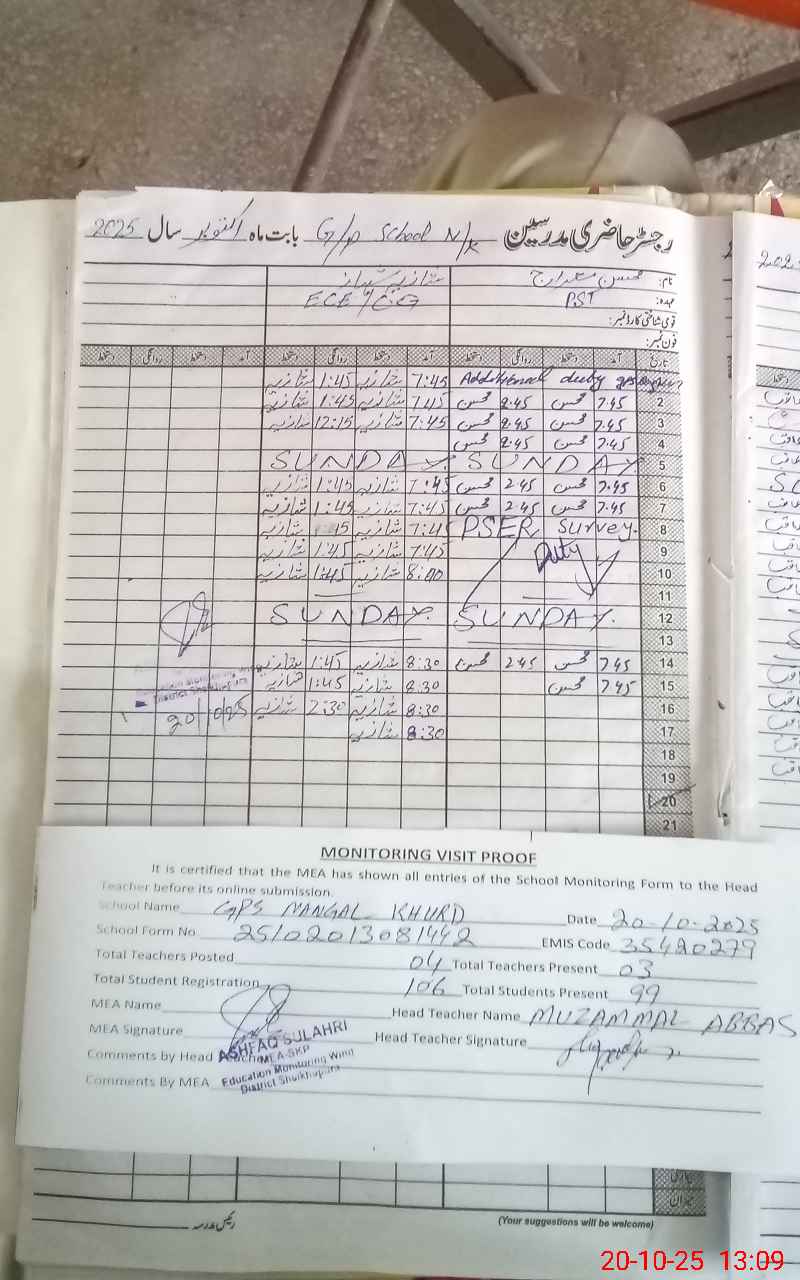 رجسٹر حاضری مدرسین G/P School N/K بابت ماہ اکتوبر سال 2025
نام: محسن شازیہ
عہدہ: PST ECE / CG
قومی شناختی کارڈ نمبر:
فون نمبر:
تاریخ آمد دستخط روانگی دستخط آمد دستخط روانگی دستخط آمد دستخط روانگی دستخط
Additional duty 7:45 شازیہ 1:45 شازیہ
2 7.45 محسن 2.45 محسن 7:45 شازیہ 1:45 شازیہ
3 7.45 محسن 2.45 محسن 7:45 شازیہ 12:15 شازیہ
4 7.45 محسن 2.45 محسن
5 SUNDAY SUNDAY
6 7.45 محسن 2.45 محسن 7:45 شازیہ 1:45 شازیہ
7 7.45 محسن 2.45 محسن 7:45 شازیہ 1:45 شازیہ
8 PSER Survey. شازیہ شازیہ
9 Duty 7:45 شازیہ 1:45 شازیہ
10 8:00 شازیہ 1:45 شازیہ
11
12 SUNDAY. SUNDAY.
13
14 7.45 محسن 2.45 محسن 8:30 شازیہ 1:45 شازیہ
15 7.45 محسن 8:30 شازیہ 1:45 شازیہ
16 8:30 شازیہ 2:30 شازیہ
17 8:30 شازیہ
18
19
20
21
District Sheikhupura
20/10/25
MONITORING VISIT PROOF
It is certified that the MEA has shown all entries of the School Monitoring Form to the Head
Teacher before its online submission.
School Name GPS NANGAL KHURD Date 20-10-2025
School Form No 25102013081442 EMIS Code 35420279
Total Teachers Posted 04 Total Teachers Present 03
Total Student Registration 106 Total Students Present 99
MEA Name Head Teacher Name MUZAMMAL ABBAS
MEA Signature Head Teacher Signature
Comments by Head Teacher
Comments By MEA
ASHFAQ SULAHRI
MEA-SKP
Education Monitoring Wing
District Sheikhupura
رئیس مدرسہ
(Your suggestions will be welcome)
20-10-25 13:09